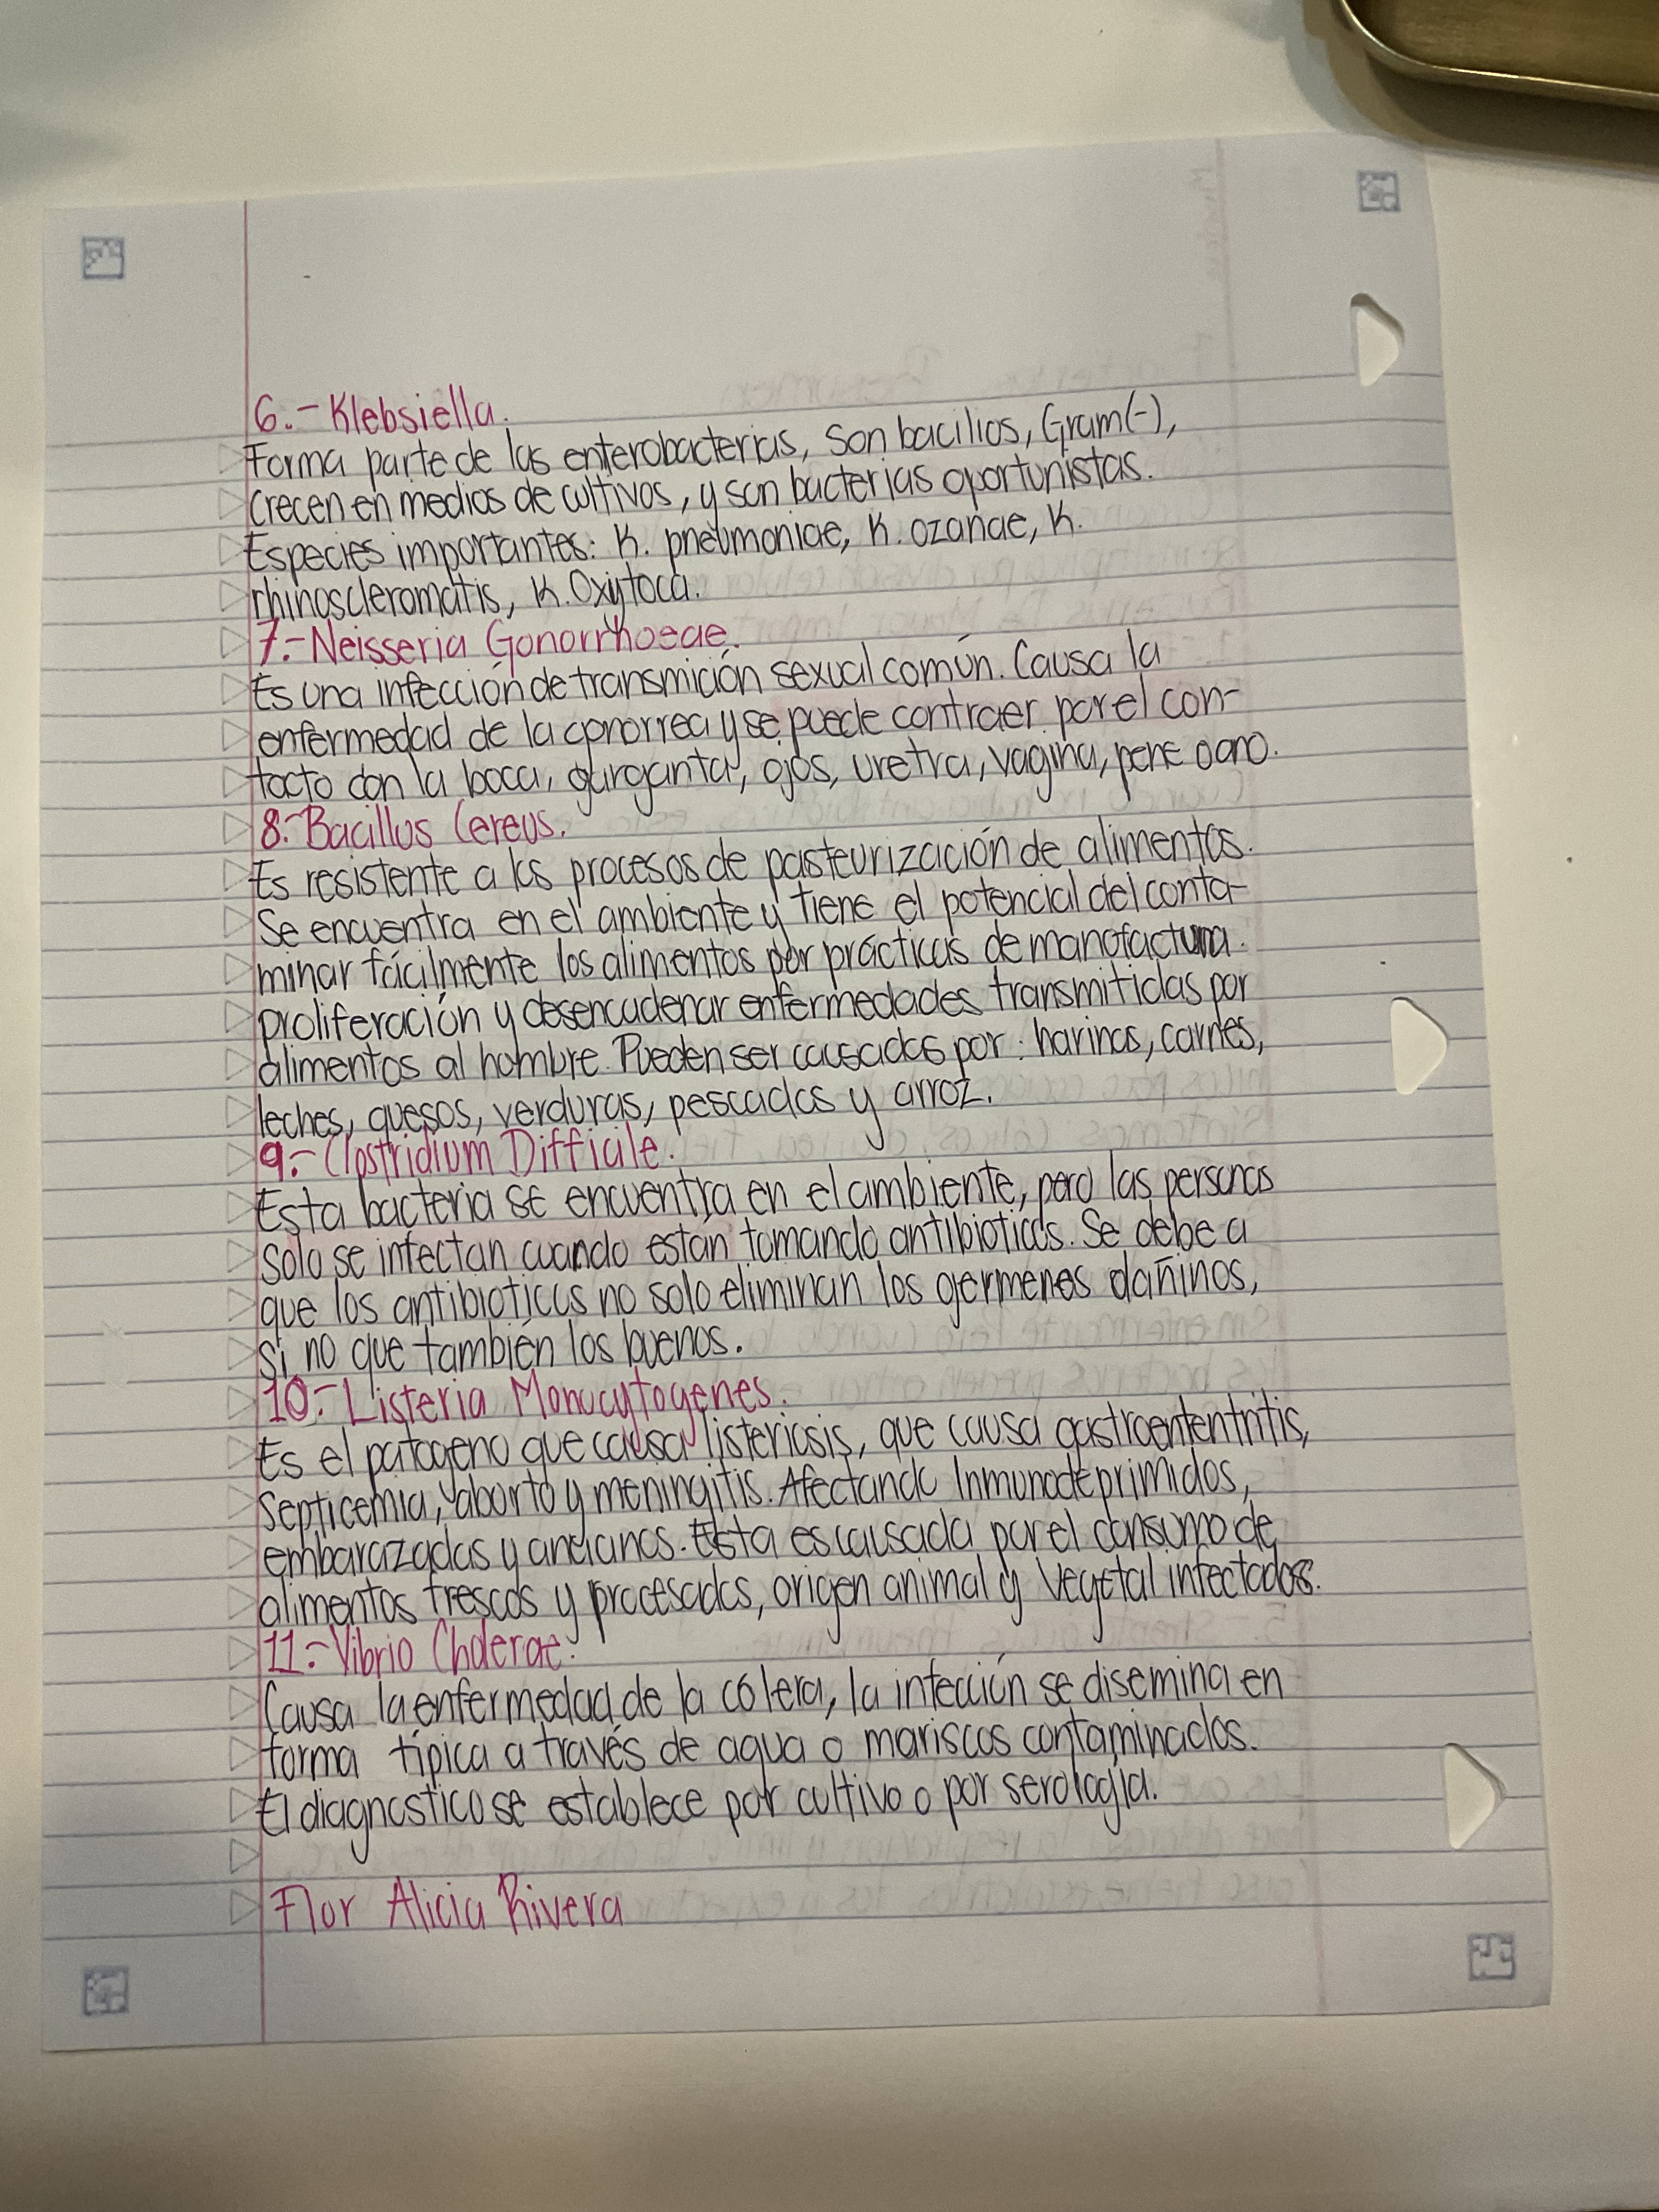 6.- Klebsiella.
Forma parte de las enterobacterias, Son bacilios, Gram(-),
Crecen en medios de cultivos, y son bacterias oportunistas.
Especies importantes: K. pneumoniae, K. ozanae, K.
rhinoscleromatis, K. Oxytoca.
7.- Neisseria Gonorrhoeae.
Es una infección de transmición sexual común. Causa la
enfermedad de la gonorrea y se puede contraer por el con-
tacto con la boca, garganta, ojos, uretra, vagina, pene o ano.
8.- Bacillus Cereus.
Es resistente a los procesos de pasteurización de alimentos.
Se encuentra en el ambiente y tiene el potencial del conta-
minar fácilmente los alimentos por prácticas de manofactura.
proliferación y desencadenar enfermedades transmitidas por
alimentos al hombre. Pueden ser causadas por: harinas, carnes,
leches, quesos, verduras, pescados y arroz.
9.- Clostridium Difficile.
Esta bacteria se encuentra en el ambiente, pero las personas
solo se infectan cuando están tomando antibioticos. Se debe a
que los antibioticos no solo eliminan los germenes dañinos,
si no que también los buenos.
10.- Listeria Monocytogenes.
Es el patogeno que causa listeriosis, que causa gastroententritis,
Septicemia, aborto y meningitis. Afectando Inmunodeprimidos,
embarazadas y ancianos. Esta es causada por el consumo de
alimentos frescos y procesados, origen animal y vegetal infectados.
11.- Vibrio Cholerae.
Causa la enfermedad de la cólera, la infección se disemina en
forma típica a través de agua o mariscos contaminados.
El diagnostico se establece por cultivo o por serología.
Flor Alicia Rivera